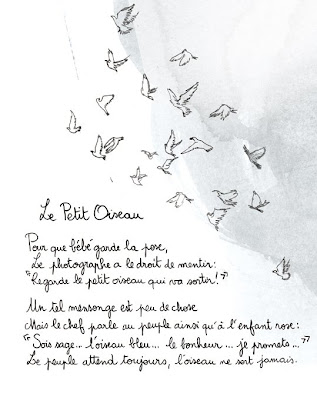 Le Petit Oiseau
Pour que bébé garde la pose,
Le photographe a le droit de mentir:
"Regarde le petit oiseau qui va sortir!"
Un tel mensonge est peu de chose
Mais le chef parle au peuple ainsi qu'à l'enfant rose:
"Sois sage... l'oiseau bleu... le bonheur... je promets..."
Le peuple attend toujours, l'oiseau ne sort jamais.